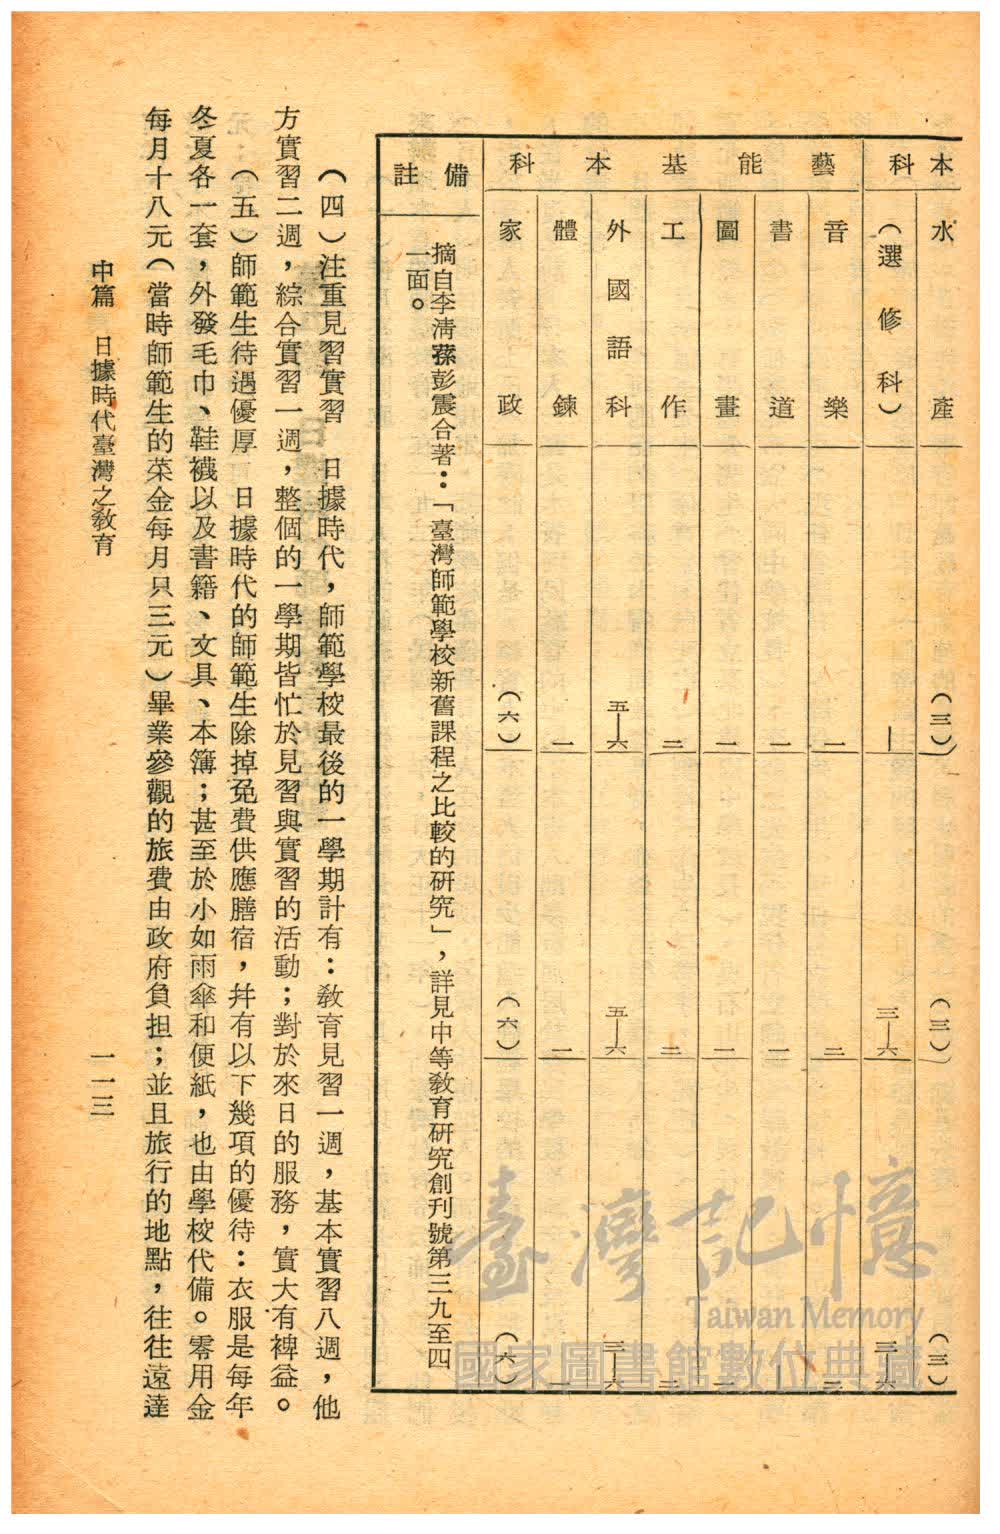 本科
水產
（三）
（三）
（三）
（選修科）
｜
三—六
三—六
藝能基本科
音樂
一
二
二
書道
一
一
圖畫
一
一
工作
二
二
外國語科
五—六
五—六
三—六
體鍊
一
一
一
家政
（六）
（六）
（六）
備註
摘自李清蓀彭震合著：「臺灣師範學校新舊課程之比較的研究」，詳見中等教育研究創刊號第三九至四
一面。
（四）注重見習實習　日據時代，師範學校最後的一學期計有：教育見習一週，基本實習八週，他
方實習二週，綜合實習一週，整個的一學期皆忙於見習與實習的活動；對於來日的服務，實大有裨益。
（五）師範生待遇優厚　日據時代的師範生除掉免費供應膳宿，幷有以下幾項的優待：衣服是每年
冬夏各一套，外發毛巾、鞋襪以及書籍、文具、本簿；甚至於小如雨傘和便紙，也由學校代備。零用金
每月十八元（當時師範生的菜金每月只三元）畢業參觀的旅費由政府負担；並且旅行的地點，往往遠達
中篇　日據時代臺灣之教育
一一三
臺灣記憶
Taiwan Memory
國家圖書館數位典藏